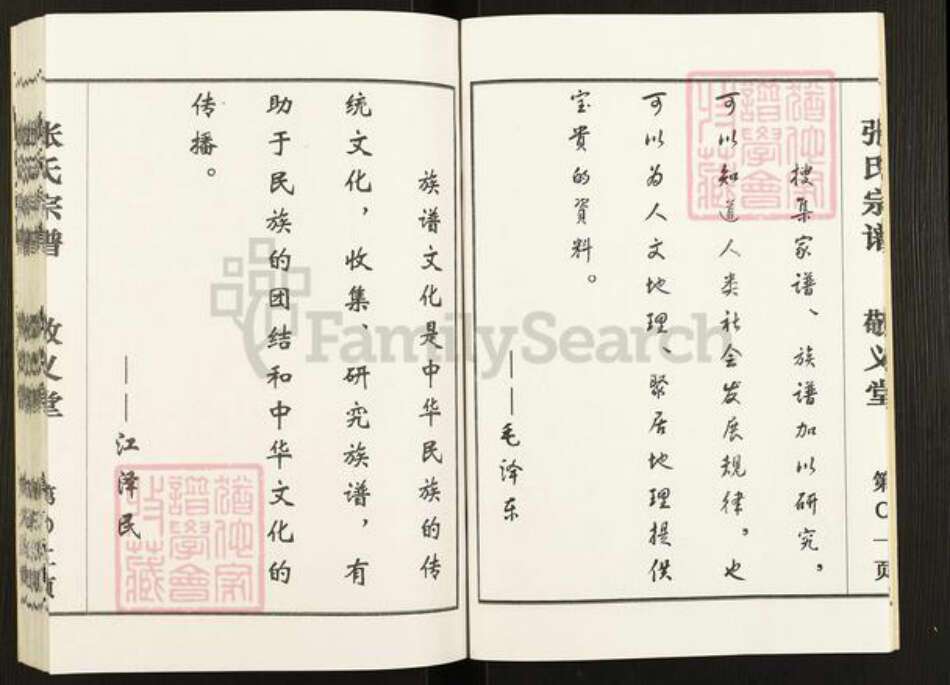 张氏宗谱 敬义堂 第〇一页
搜集家谱、族谱加以研究,
可以知道人类社会发展规律。也
可以为人文地理、聚居地理提供
宝贵的資料。
——毛泽东
族谱文化是中华民族的传
统文化,收集、研究族谱,有
助于民族的团结和中华文化的
传播。
——江泽民
张氏宗谱 敬义堂
譜學會
收藏
譜學會
收藏
FamilySearch